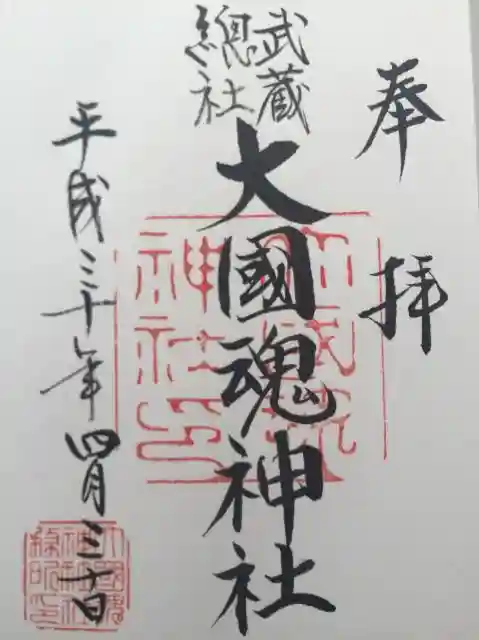 奉拝
武蔵
總社
大國魂神社
平成三十年四月三十日